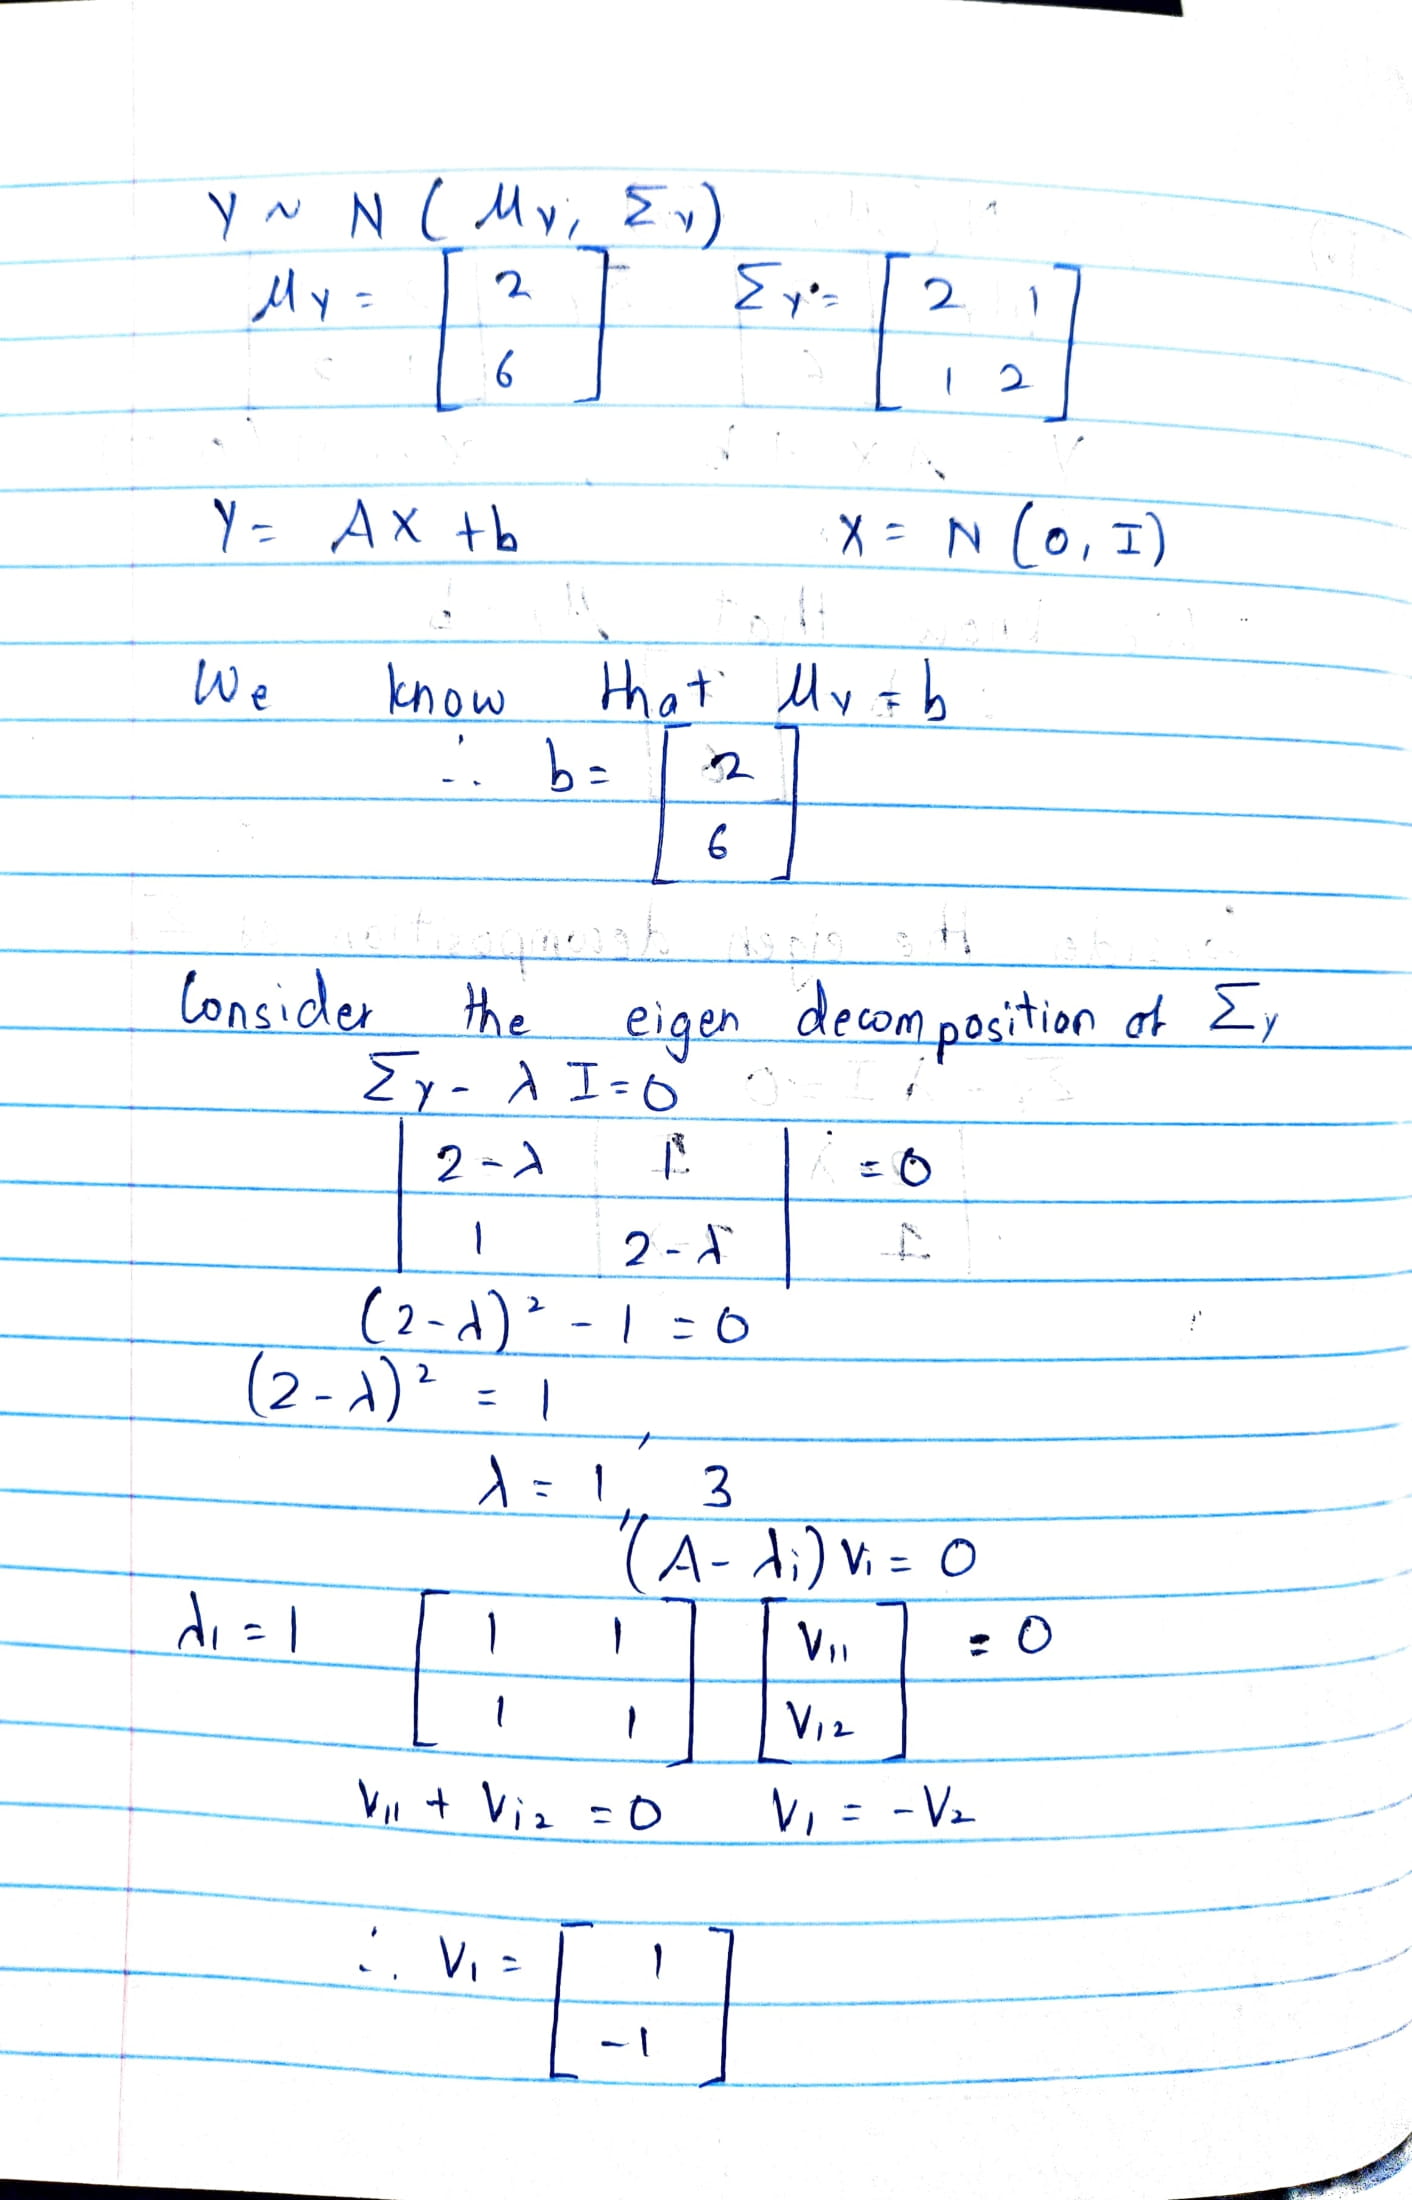 Y ~ N ( μY, ΣY)
μY = [ 2 6 ] ΣY = [ 2 1 1 2 ]
Y = AX + b X = N (0, I)
We know that μY = b
∴ b = [ 2 6 ]
Consider the eigen decomposition of ΣY
ΣY - λ I = 0
| 2-λ 1 | = 0
| 1 2-λ |
(2-λ)² - 1 = 0
(2-λ)² = 1
λ = 1, 3
(A - λi) Vi = 0
λ1 = 1 [ 1 1 1 1 ] [ V11 V12 ] = 0
V11 + V12 = 0 V1 = -V2
∴ V1 = [ 1 -1 ]